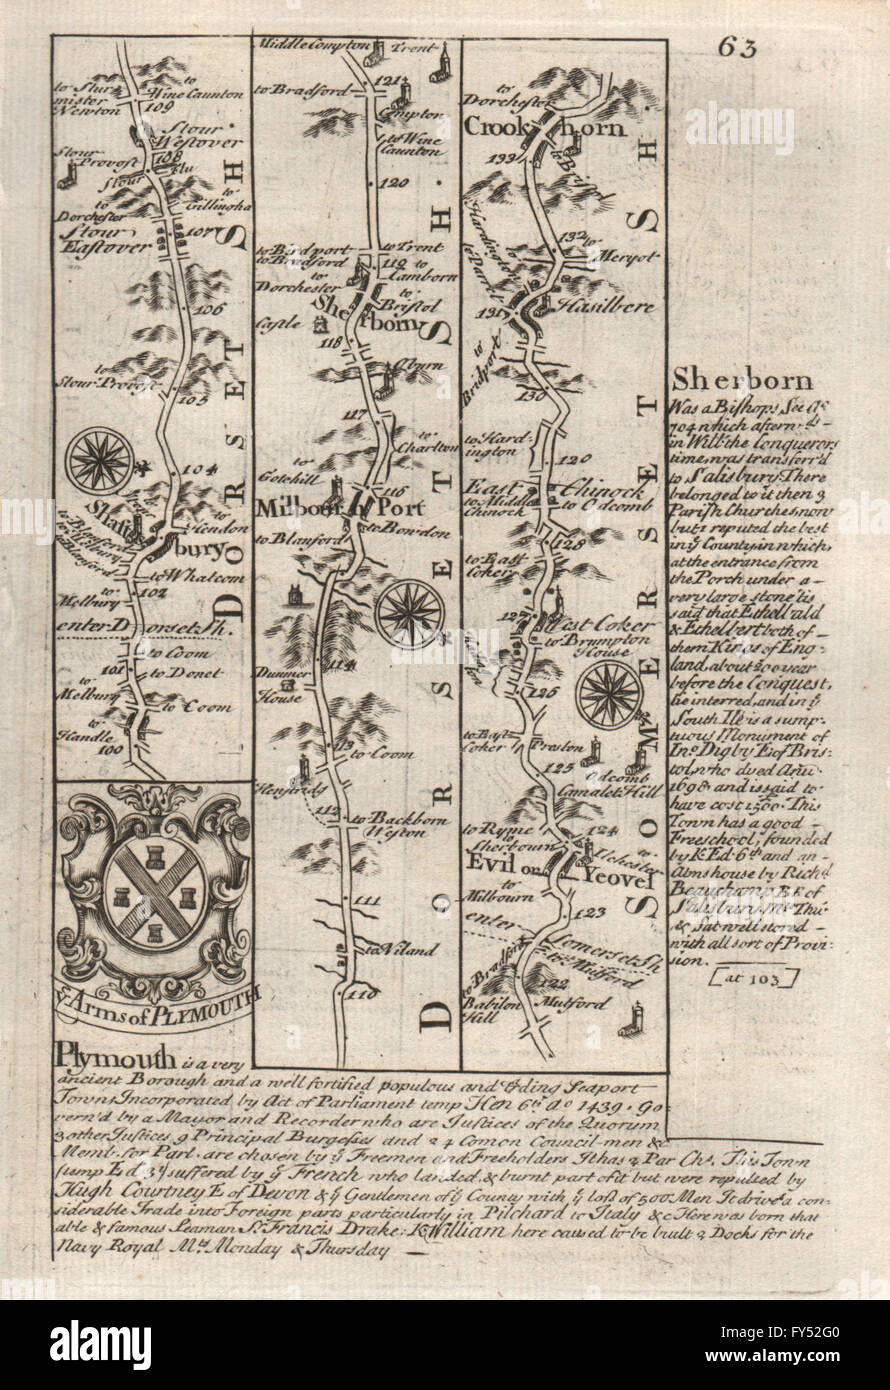 63
Middle Compton
Trent
to Bradford
121
Compton
to Wine
Caunton
120
to Birdport
to Bradford
to Trent
119
to
Dorchester
to
Camborn
to
Bristol
Sherborn
Castle
118
Oburn
117
to
Charlton
to
Gotehill
116
Milbourn Port
to Blanford
to Bowdon
114
Dummer
House
113
to Coom
Henstridg
112
to Backborn
Weston
111
to Viland
110
DORSET SH.
to Stur
mister
Newton
to
Wine Caunton
109
Stour
Westover
Stour
Provost
108
Stour
flu
to
Gillingha
to
Dorchester
Stour
Eastover
107
106
to
Stour Provost
105
104
Shaftsbury
to
Hendon
to Blanford
to Melbury
to Whatcom
to
Melbury
102
enter Dorset Sh.
to Coom
101
to Donet
to
Melbury
to Coom
to
Handle
100
DORSET SH.
to
Dorchester
Crookhorn
133
to Bristol
Hardington
132
to
Meryot
to Parret
131
Hasilbere
to
Bridport
130
to Hard-
ington
129
East
Chinock
to Middle
Chinock
to Odcomb
128
to East
Coker
127
West Coker
to Brympton
House
126
to East
Coker
Preston
125
Odcomb
Camalet Hill
to Ryme
to
Sherbourn
124
to
Ilchester
Evil or Yeovel
to
Milbourn
123
enter
Somerset Sh
to Bradford
to Mulford
122
Babilon
Hill
Mulford
SOMERSET SH.
Sherborn
Was a Bishops See Ao
704 which afterwds
in Will the Conquerors
time, was transferr'd
to Salisbury. There
belonged to it then 3
Parish Churches now
but 1 reputed the best
in ye County, in which,
at the entrance from
the Porch under a
very large stone tis
said that Ethellbald
& Ethelbert both of
them Kings of Eng-
land, about 200 year
before the Conquest,
lie interred, and in ye
South Ile is a sump-
tuous Monument of
Jno Digby E of Bris-
tol, who dyed Ano
1698 and is said to
have cost 1500. This
Town has a good
Freeschool, founded
by K Ed. 6th and an
Almshouse by Richd
Beauchamp Bp of
Salisbury. Mts Thu
& Sat well stored
with all sort of Provi-
sion.
[at 103]
ye Arms of PLYMOUTH
Plymouth is a very
ancient Borough and a well fortified populous and trding Seaport
Town, Incorporated by Act of Parliament temp Hen 6th Ao 1439. Go-
vern'd by a Mayor and Recorder who are Justices of the Quorum
3 other Justices 9 Principal Burgesses and 24 Comon Council-men &c
Memb. for Parl. are chosen by ye Freemen and Freeholders It has 2 Par Chs. This Town
temp Ed 3d suffered by ye French who landed, & burnt part of it but were repulsed by
Hugh Courtney E of Devon & ye Gentlemen of ye County with ye loss of 500 Men It drives a con-
siderable Trade into Foreign parts particularly in Pilchard to Italy &c Here was born that
able & famous Seaman Sr. Francis Drake: K William here caused to be built 2 Docks for the
Navy Royal Mts Monday & Thursday
alamy
Image ID: FY52G0
www.alamy.com